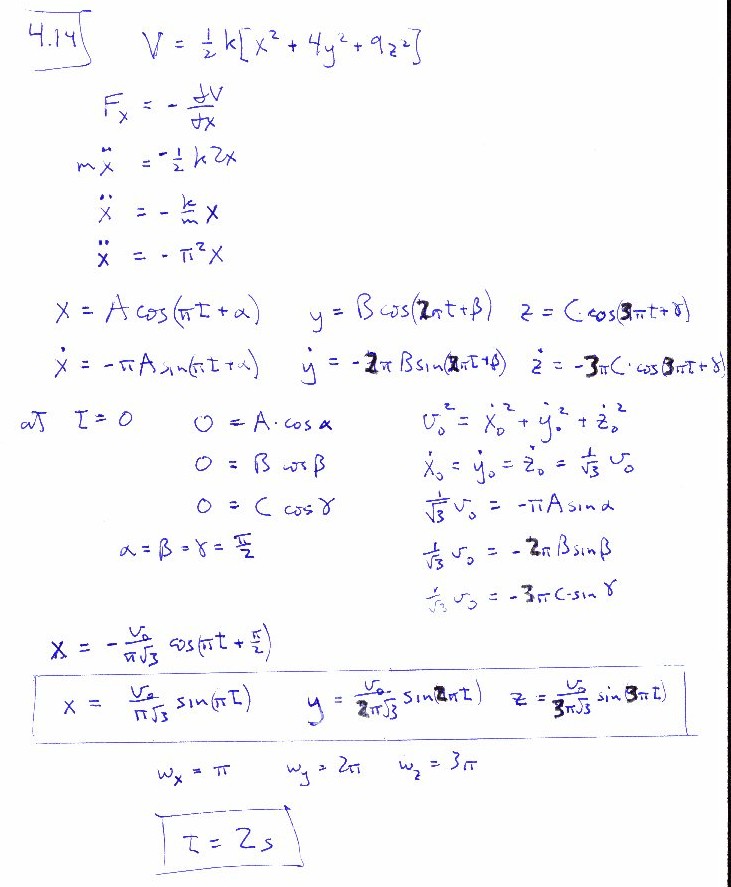 4.14 V = ½ k[x² + 4y² + 9z²]
Fₓ = - dV/dx
mẍ = -½ k2x
ẍ = - k/m x
ẍ = - π²x
x = A cos(πt + α) y = B cos(2πt+β) z = C·cos(3πt+γ)
ẋ = -πA sin(πt+α) ẏ = -2πB sin(2πt+β) ż = -3πC·cos(3πt+γ)
at t = 0 0 = A·cos α v₀² = ẋ₀² + ẏ₀² + ż₀²
0 = B cos β ẋ₀ = ẏ₀ = ż₀ = 1/√3 v₀
0 = C cos γ 1/√3 v₀ = -πA sin α
α = β = γ = π/2 1/√3 v₀ = -2πB sin β
1/√3 v₀ = -3πC·sin γ
x = - v₀/π√3 cos(πt + π/2)
x = v₀/π√3 sin(πt) y = v₀/2π√3 sin(2πt) z = v₀/3π√3 sin(3πt)
wₓ = π w_y = 2π w_z = 3π
τ = 2s